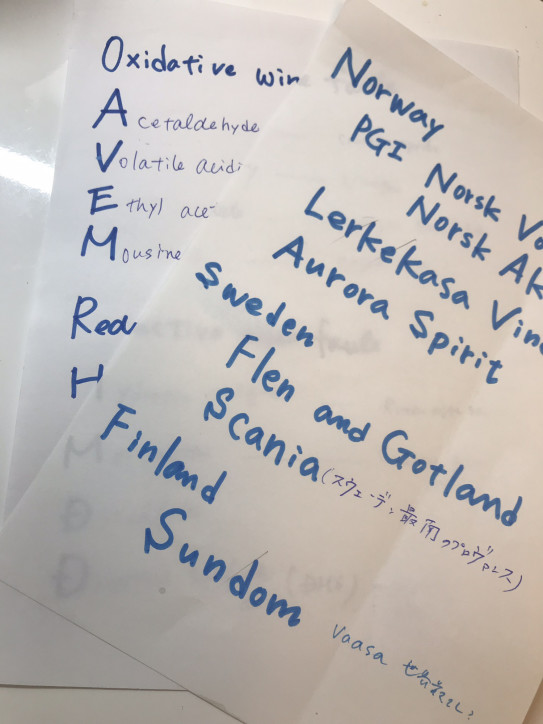 Oxidative wine
Acetaldehyde
Volatile acidi
Ethyl ace
Mousine
Red
H
Norway
PGI Norsk Vo
Norsk Ak
Lerkekasa Vine
Aurora Spirit
Sweden
Flen and Gotland
Scania (スウェーデン最南のプロヴァンス)
Finland
Sundom
Vaasa